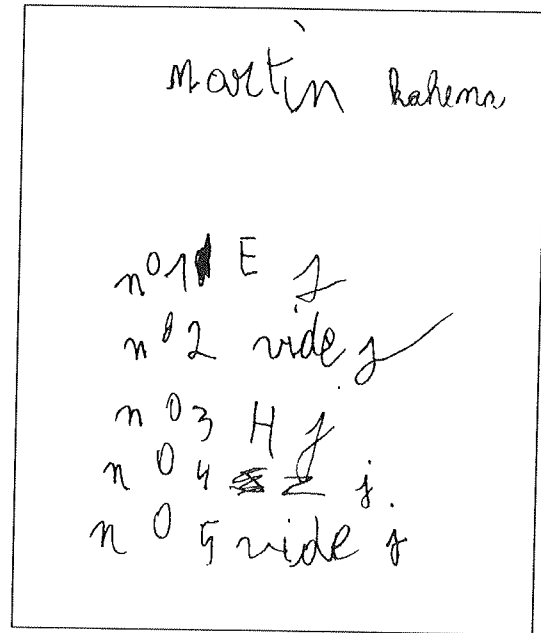 Martin kahena
n°1 E j
n°2 vide j
n°3 H j
n°4 Z j
n°5 vide j